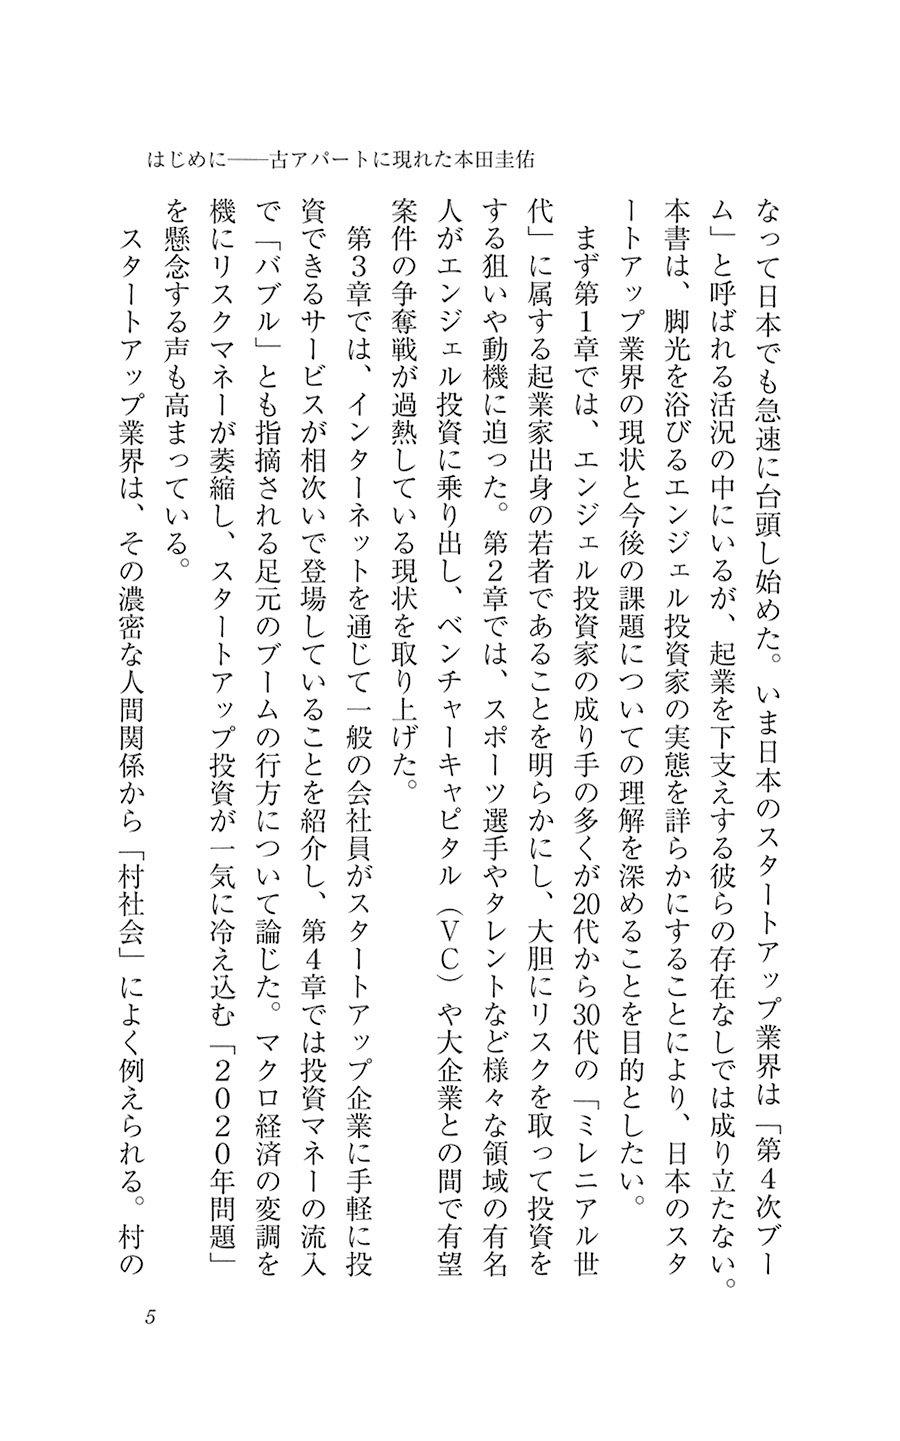 はじめに――古アパートに現れた本田圭佑
なって日本でも急速に台頭し始めた。いま日本のスタートアップ業界は「第4次ブー
ム」と呼ばれる活況の中にいるが、起業を下支えする彼らの存在なしでは成り立たない。
本書は、脚光を浴びるエンジェル投資家の実態を詳らかにすることにより、日本のスタ
ートアップ業界の現状と今後の課題についての理解を深めることを目的としたい。
まず第1章では、エンジェル投資家の成り手の多くが20代から30代の「ミレニアル世
代」に属する起業家出身の若者であることを明らかにし、大胆にリスクを取って投資を
する狙いや動機に迫った。第2章では、スポーツ選手やタレントなど様々な領域の有名
人がエンジェル投資に乗り出し、ベンチャーキャピタル（VC）や大企業との間で有望
案件の争奪戦が過熱している現状を取り上げた。
第3章では、インターネットを通じて一般の会社員がスタートアップ企業に手軽に投
資できるサービスが相次いで登場していることを紹介し、第4章では投資マネーの流入
で「バブル」とも指摘される足元のブームの行方について論じた。マクロ経済の変調を
機にリスクマネーが萎縮し、スタートアップ投資が一気に冷え込む「2020年問題」
を懸念する声も高まっている。
スタートアップ業界は、その濃密な人間関係から「村社会」によく例えられる。村の
5